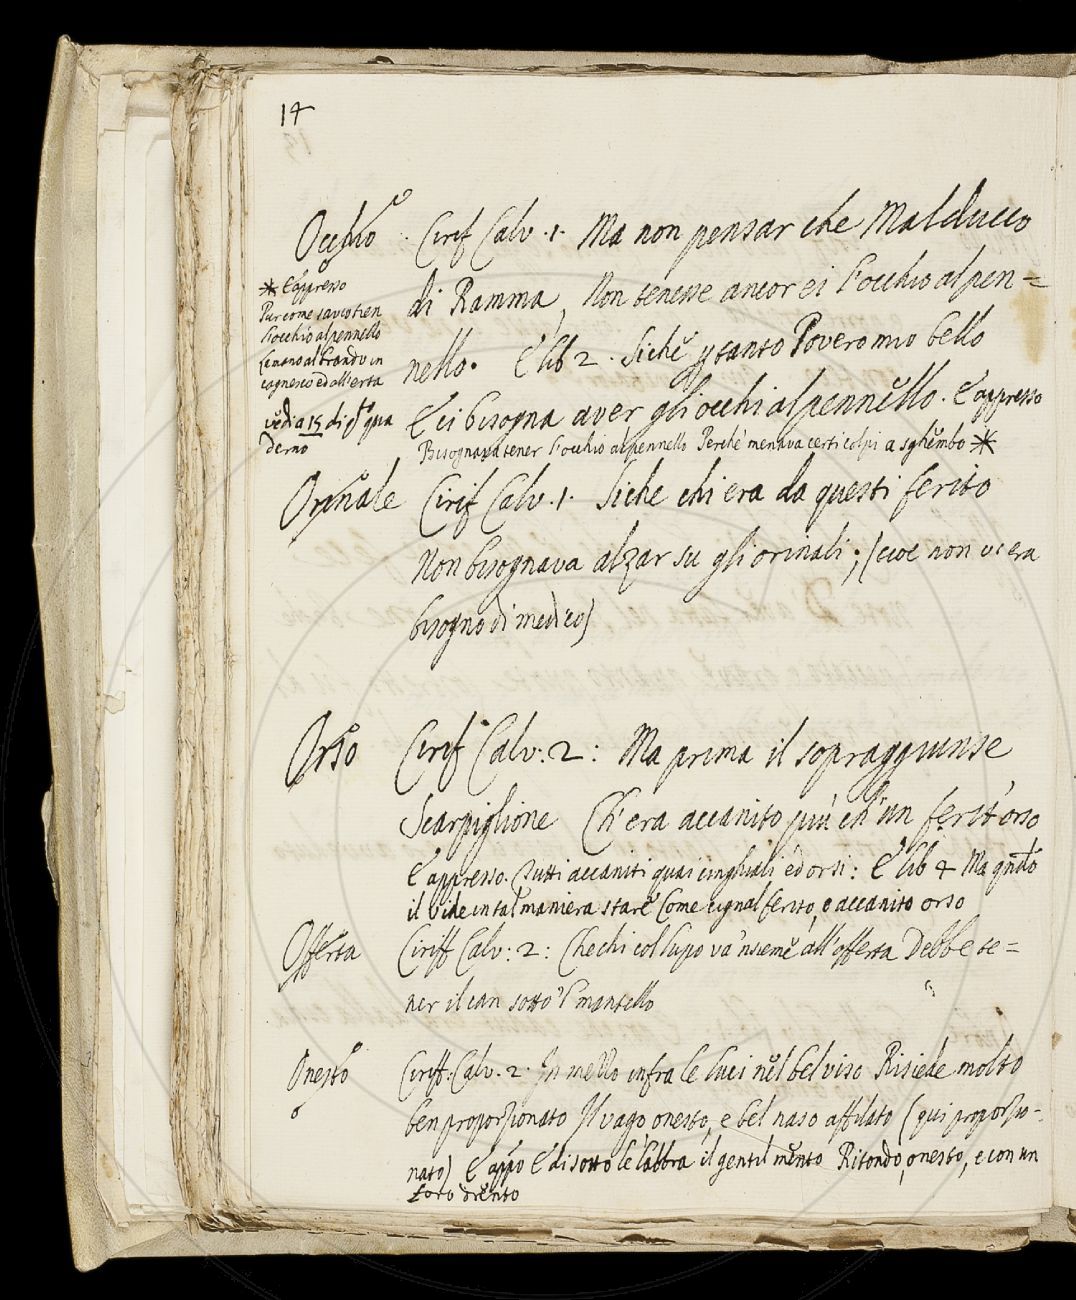 14
Occhio Cirif Calv. 1. Ma non pensar che Malducco
di Ramma, Non tenesse ancor ei l'occhio al pen=
nello. E lib 2. Sichè tanto Povero mio bello
E ci bisogna aver gli occhi al pennello. E appresso
Bisognava tener l'occhio al pennello Perchè menava certi colpi a sghembo *
* E appresso
Pur come savio tien
l'occhio al pennello
La mano al brando in
cagnesco ed all'erta
vedi a 15 di qto qua
derno
Orinale Cirif Calv. 1. Siche chi era da questi ferito
Non bisognava alzar su gli orinali; (cioè non vi era
bisogno di medico)
Orso Cirif Calv: 2: Ma prima il sopraggiunse
Scarpiglione Ch'era accanito più ch'un ferit'orso
E appresso. Tutti accaniti quai cinghiali ed orsi: E lib 4 Ma qndo
il vide in tal maniera stare Come cignal ferito, o accanito orso
Offerta Ciriff Calv: 2: Che chi col lupo va 'nsieme all'offerta Debbe te=
ner il can sotto 'l mantello
Onesto Ciriff. Calv. 2. In mezzo infra le luci nel bel viso Risiede molto
ben proporzionato Il vago onesto, e bel naso affilato (qui proporzio-
nato) E appo E di sotto le labbra il gentil mento Ritondo, onesto, e con un
foro drento